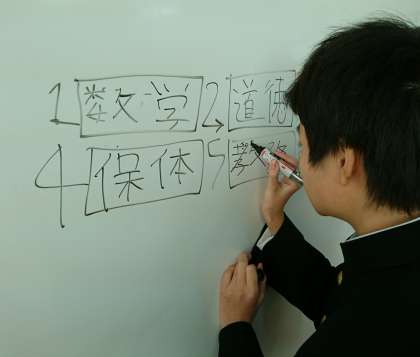 1 数学 2 道徳
4 保体 5